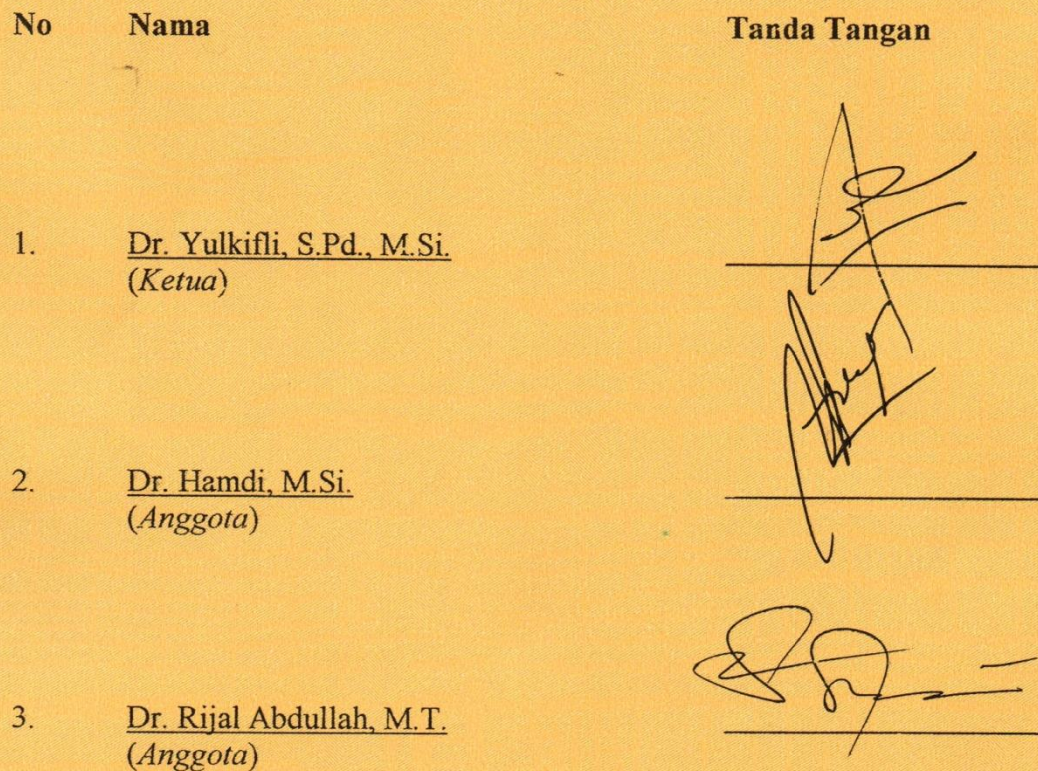 No Nama Tanda Tangan
1. Dr. Yulkifli, S.Pd., M.Si.
(Ketua)
2. Dr. Hamdi, M.Si.
(Anggota)
3. Dr. Rijal Abdullah, M.T.
(Anggota)